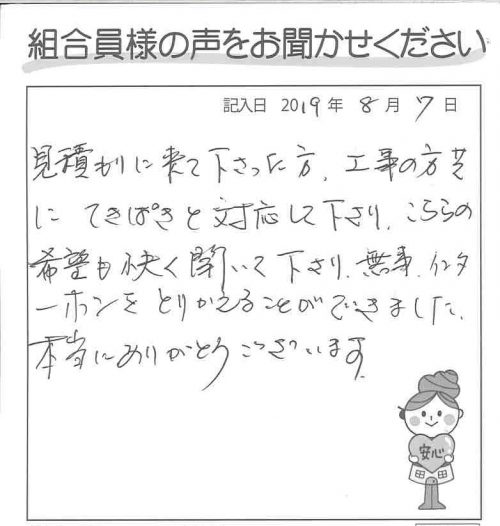 組合員様の声をお聞かせください
記入日 2019年 8月 7日
見積もりに来て下さった方、工事の方共
に てきぱきと対応して下さり、こちらの
希望も快く聞いて下さり、無事、インタ
ーホンをとりかえることができました。
本当にありがとうございます。
安心